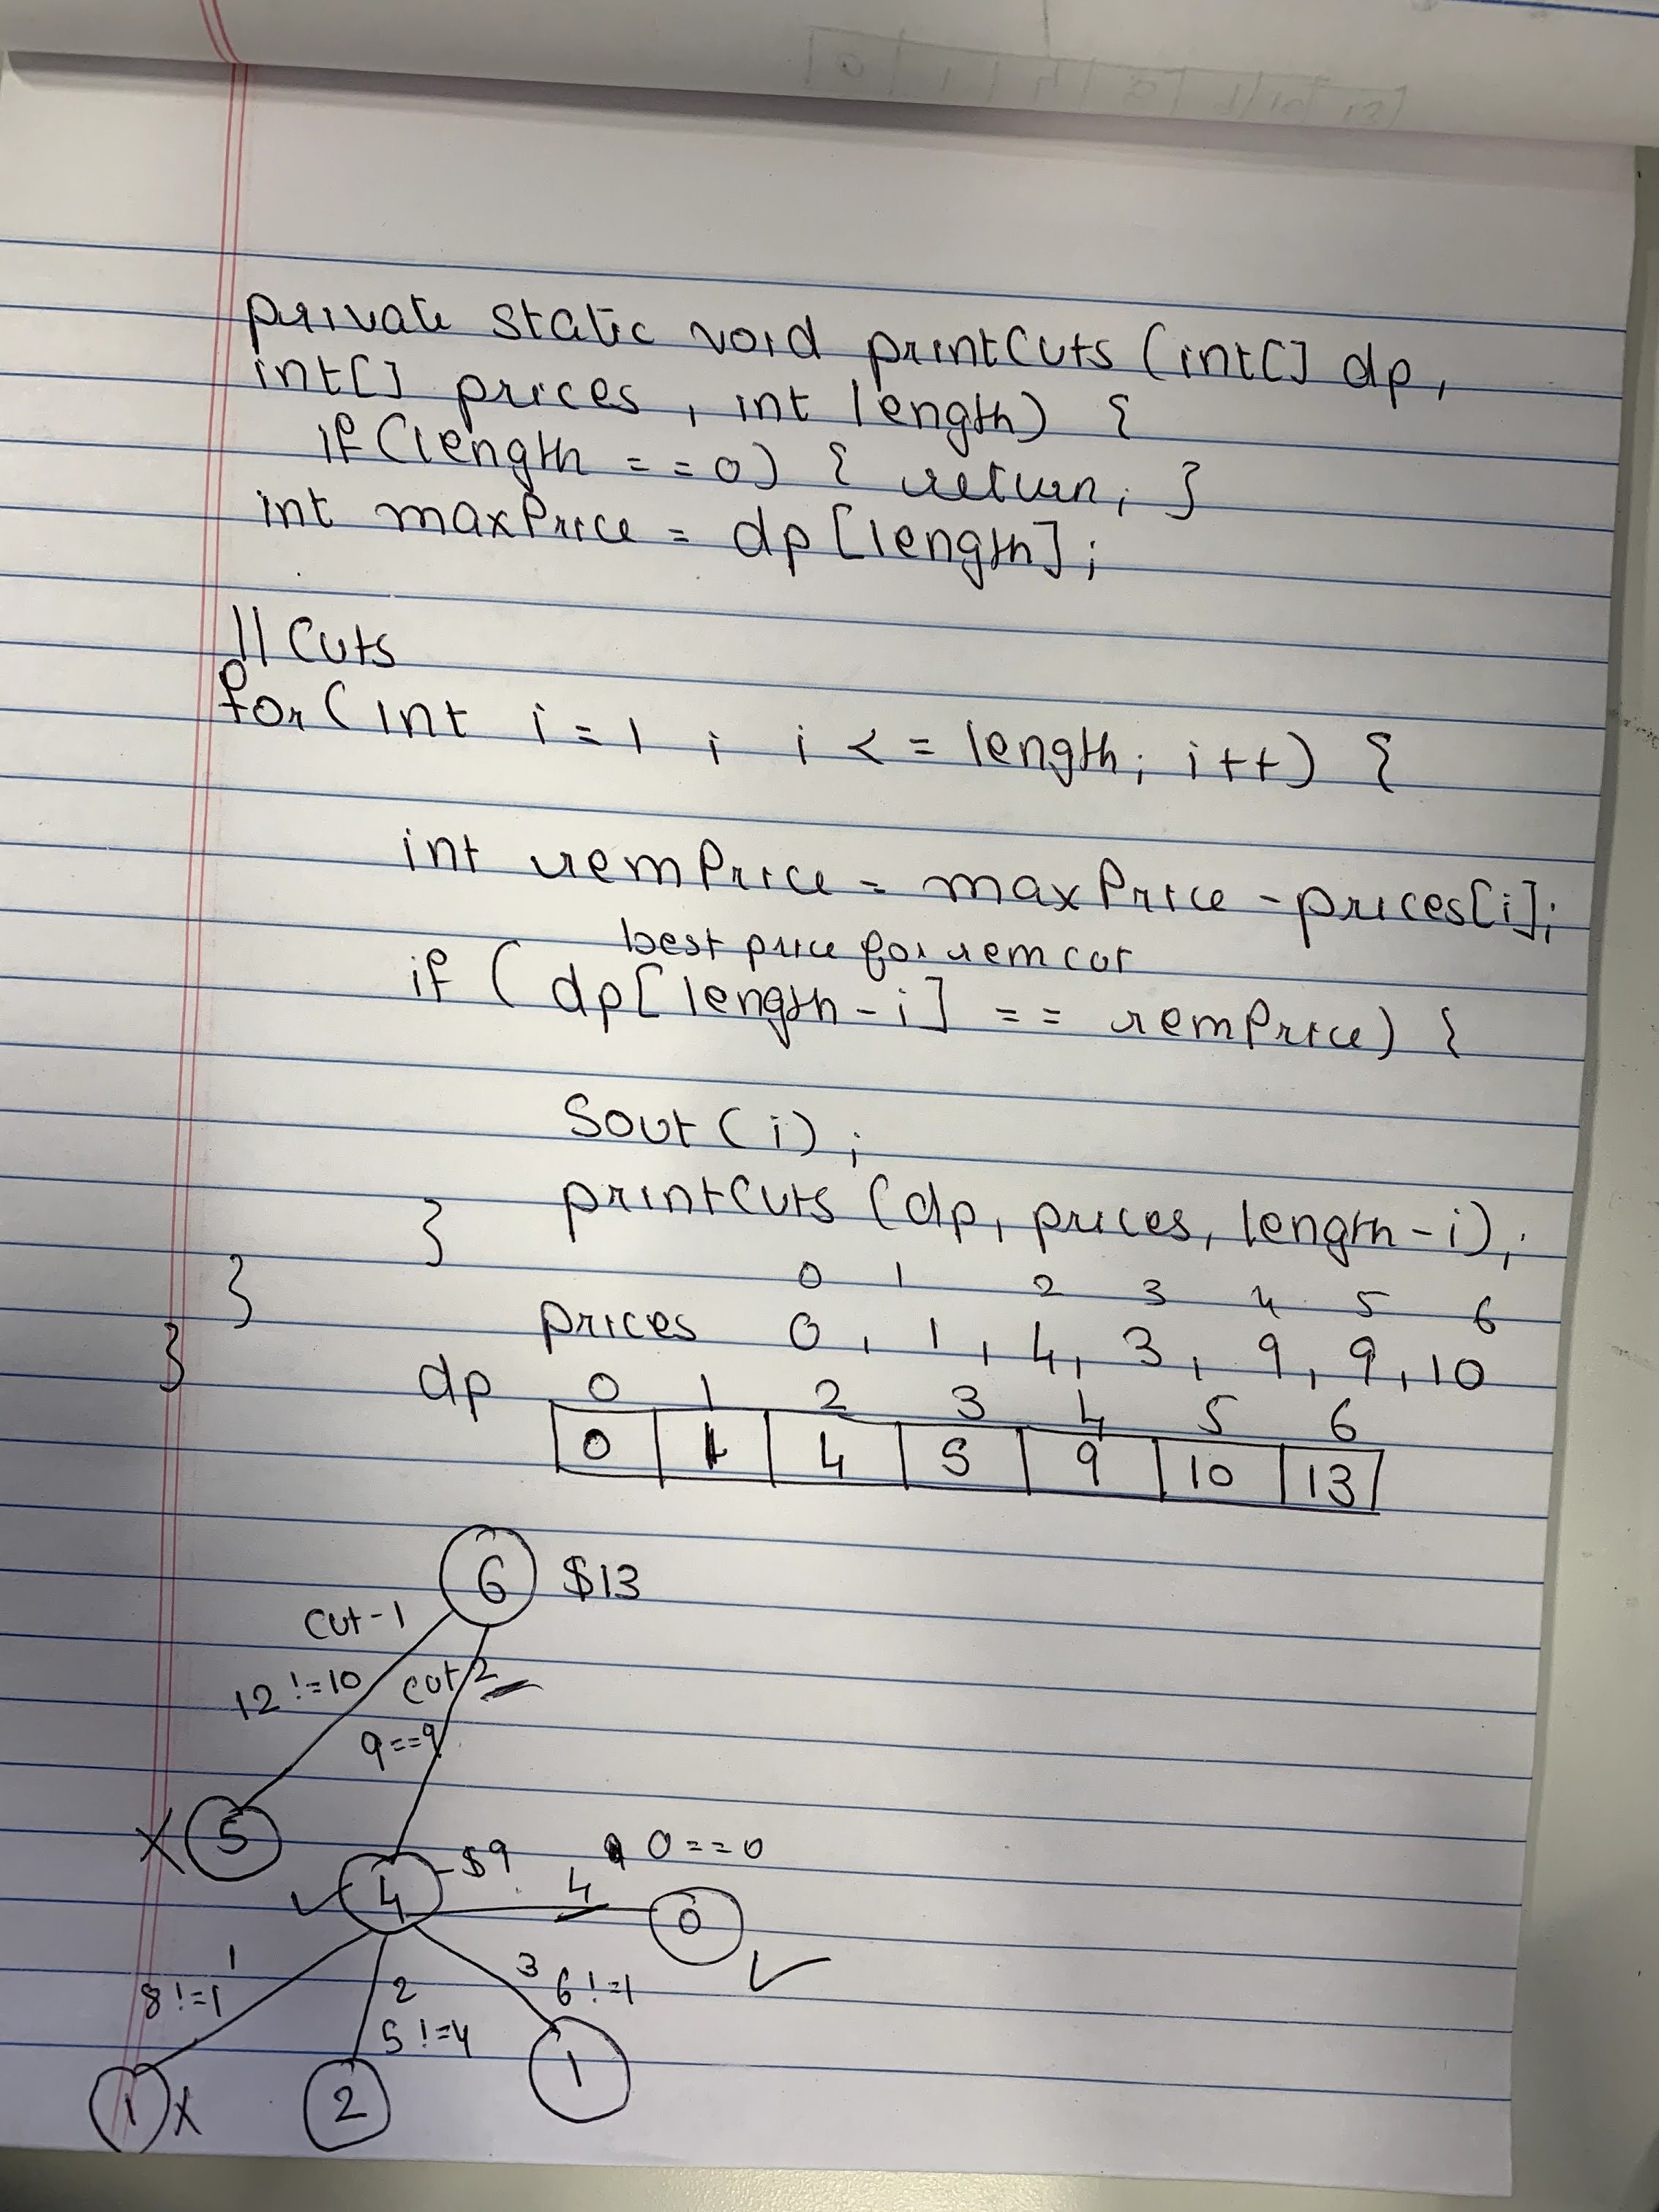 private static void printCuts (int[] dp,
int[] prices, int length) {
if(length == 0) { return; }
int maxPrice = dp[length];
// Cuts
for( int i = 1 ; i <= length; i++) {
int remPrice = maxPrice - prices[i];
best price for rem cut
if ( dp[length-i] == remPrice) {
Sout (i) ;
printCuts (dp, prices, length-i);
}
0 1 2 3 4 5 6
}
prices 0, 1, 4, 3, 9, 9, 10
}
dp 0 1 2 3 4 5 6
0 1 4 5 9 10 13
6 $13
cut-1
12 != 10 cut 2
9==9
X 5
4 - $9 4 0==0
0
1 3
8 != 1 2 6 != 1
5 != 4
1 X 2 1